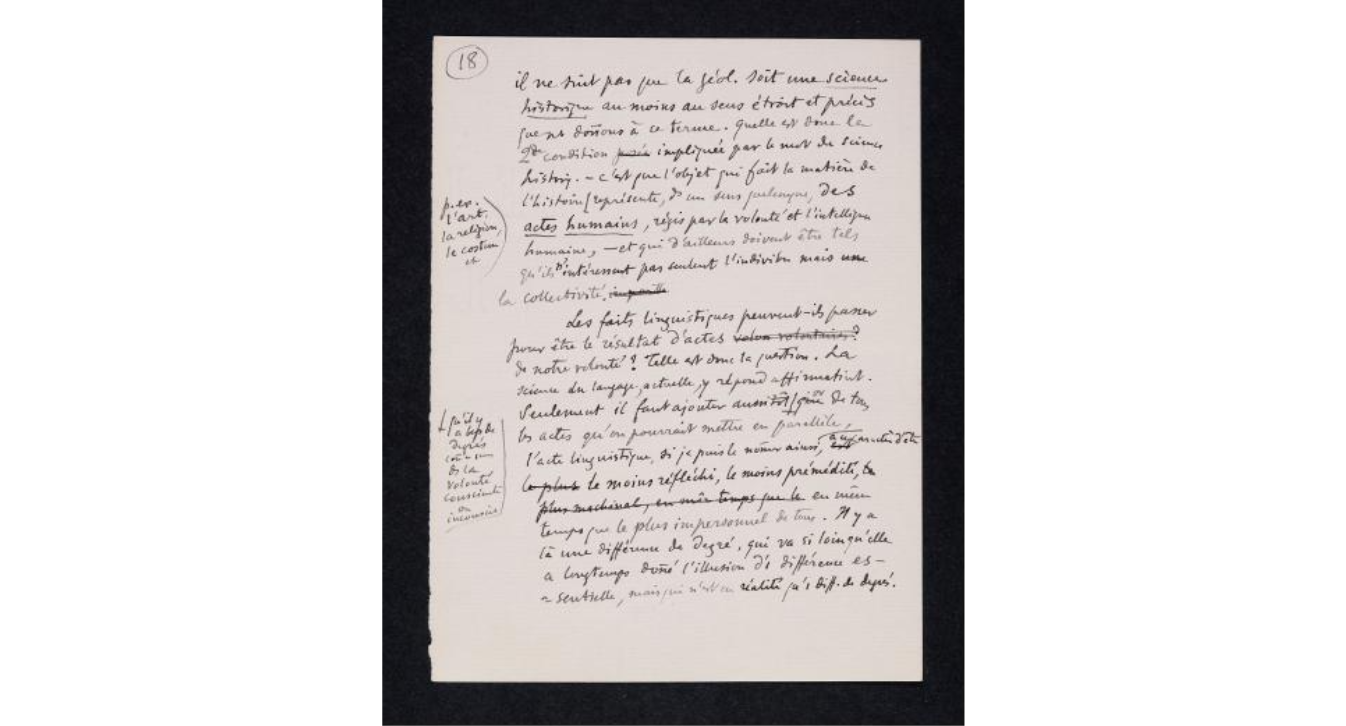 18
il ne suit pas que la géol. soit une science
historique au moins au sens étroit et précis
que ns donnons à ce terme. Quelle est donc la
2de condition posée impliquée par le mot de science
histor. – c'est que l'objet qui fait la matière de
l'histoire représente, ds un sens quelconque, des
actes humains, régis par la volonté et l'intelligence
humaine, – et qui d'ailleurs doivent être tels
qu'ils n'intéressent pas seulent l'individu mais une
la collectivité.
p. ex.
l'art,
la religion,
le costume
etc
Les faits linguistiques peuvent-ils passer
pour être le résultat d'actes volontaires?
de notre volonté? Telle est donc la question. La
science du langage, actuelle, y répond affirmativt.
Seulement il faut ajouter aussitôt que de tous
les actes qu'on pourrait mettre en parallèle,
l'acte linguistique, si je puis le nomer ainsi, a ce caractère d'être
le plus le moins réfléchi, le moins prémédité, le
plus machinal, en même temps que le en même
temps que le plus impersonnel de tous. Il y a
là une différence de degré, qui va si loin qu'elle
a longtemps donné l'illusion d'1 différence es-
sentielle, mais qui n'est en réalité qu'1 diff. de degrés.
qu'il y
a bcp de
degrés
connus
ds la
volonté
consciente
ou
inconsciente